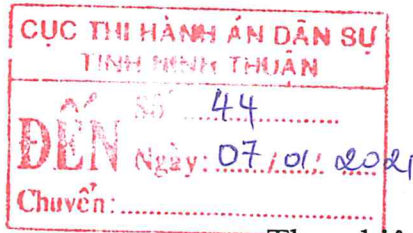 CỤC THI HÀNH ÁN DÂN SỰ
TỈNH NINH THUẬN
ĐẾN
Số 44
Ngày: 07/01/2021
Chuyển: